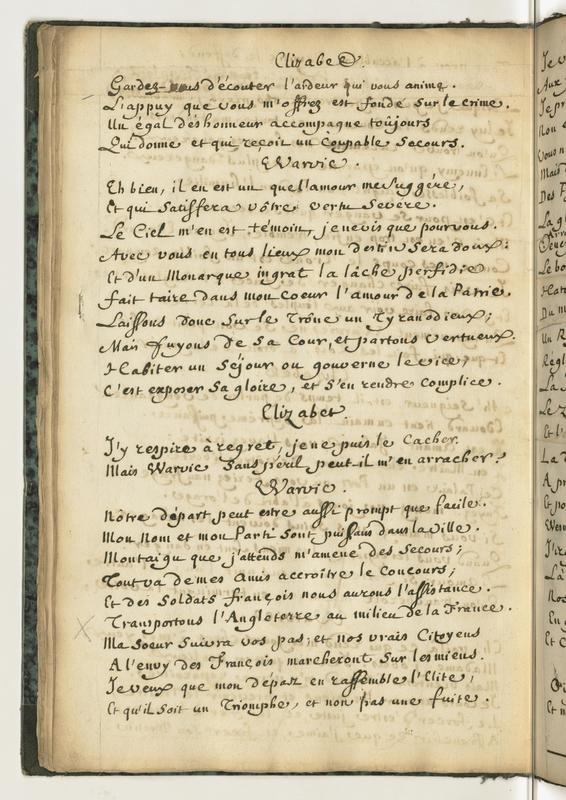 Elizabet.
Gardez-vous d'écouter l'ardeur qui vous anime.
L'appuy que vous m'offrez est fondé sur le crime.
Un égal deshonneur accompagne toujours
Qui donne et qui reçoit un Coupable Secours.
Warvic.
Eh bien, il en est un que l'amour me Suggere,
Et qui Satisfera vôtre vertu Severe.
Le Ciel m'en est témoin, je ne vis que pour vous.
Avec vous en tous lieux mon destin Sera doux:
Et d'un Monarque ingrat la lâche perfidie
Fait taire dans mon Coeur l'amour de la Patrie.
Laissons donc Sur le Trône un Tyran odieux;
Mais fuyons de Sa Cour, et partons vertueux.
Habiter un Séjour ou gouverne le vice,
C'est exposer Sa gloire, et S'en rendre Complice.
Elizabet.
J'y respire à regret, je ne puis le Cacher.
Mais Warvic Sans péril peut-il m'en arracher?
Warvic.
Nôtre départ peut estre aussi prompt que facile.
Mon Nom et mon Parti Sont puissans dans la Ville.
Montaigu que j'attends m'amene des Secours;
Tout va de mes Amis accroître le Concours;
Et des Soldats françois nous aurons l'assistance.
Transportons l'Angleterre au milieu de la France.
Ma Soeur Suivra vos pas, et nos vrais Citoyens
A l'envy des François marcheront Sur les miens.
Je veux que mon départ en rassemble l'Elite,
Et qu'il Soit un Triomphe, et non pas une fuite.